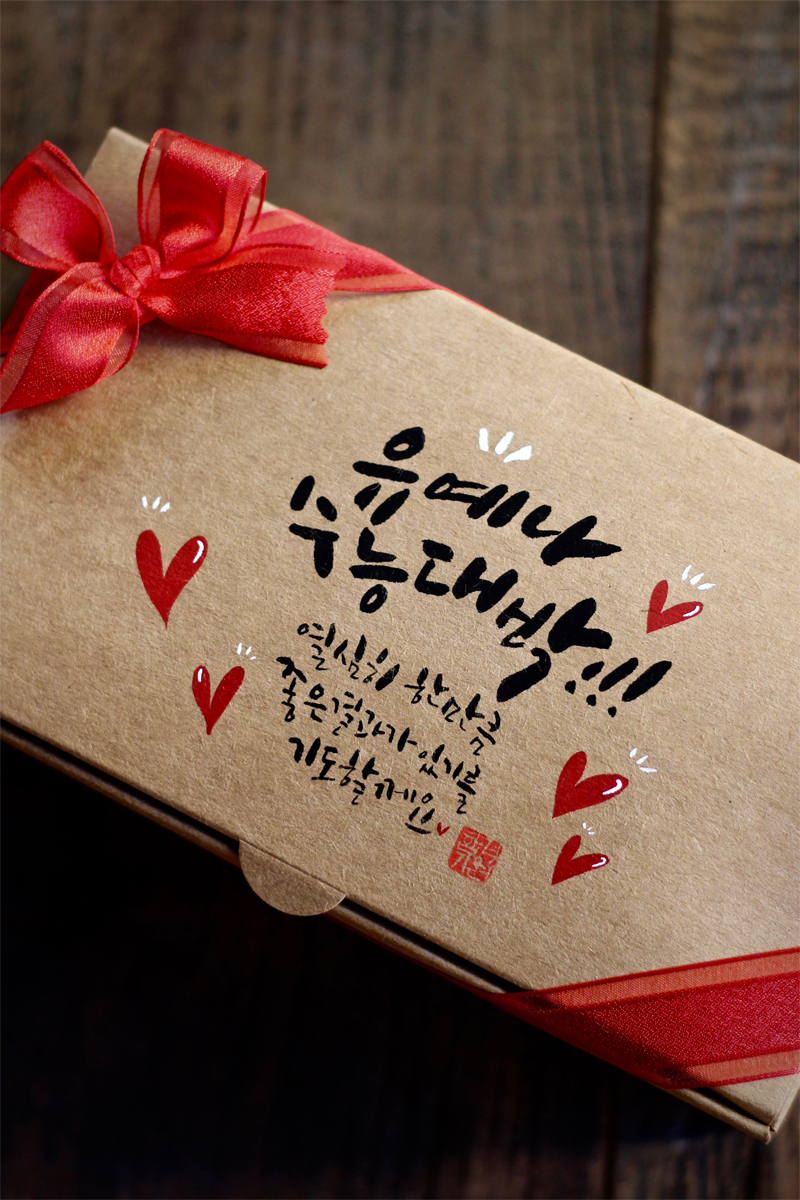 유예나
수능대박!!!
열심히 한만큼
좋은결과가 있기를
기도할게요